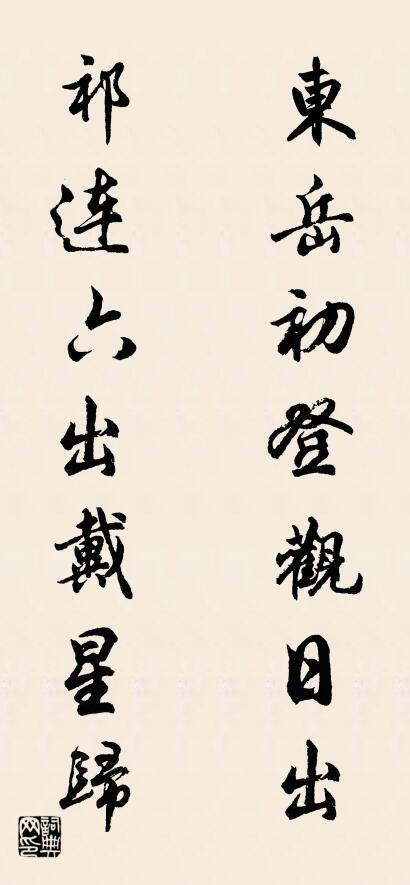 東岳初登觀日出
祁連六出戴星歸
詞典網印